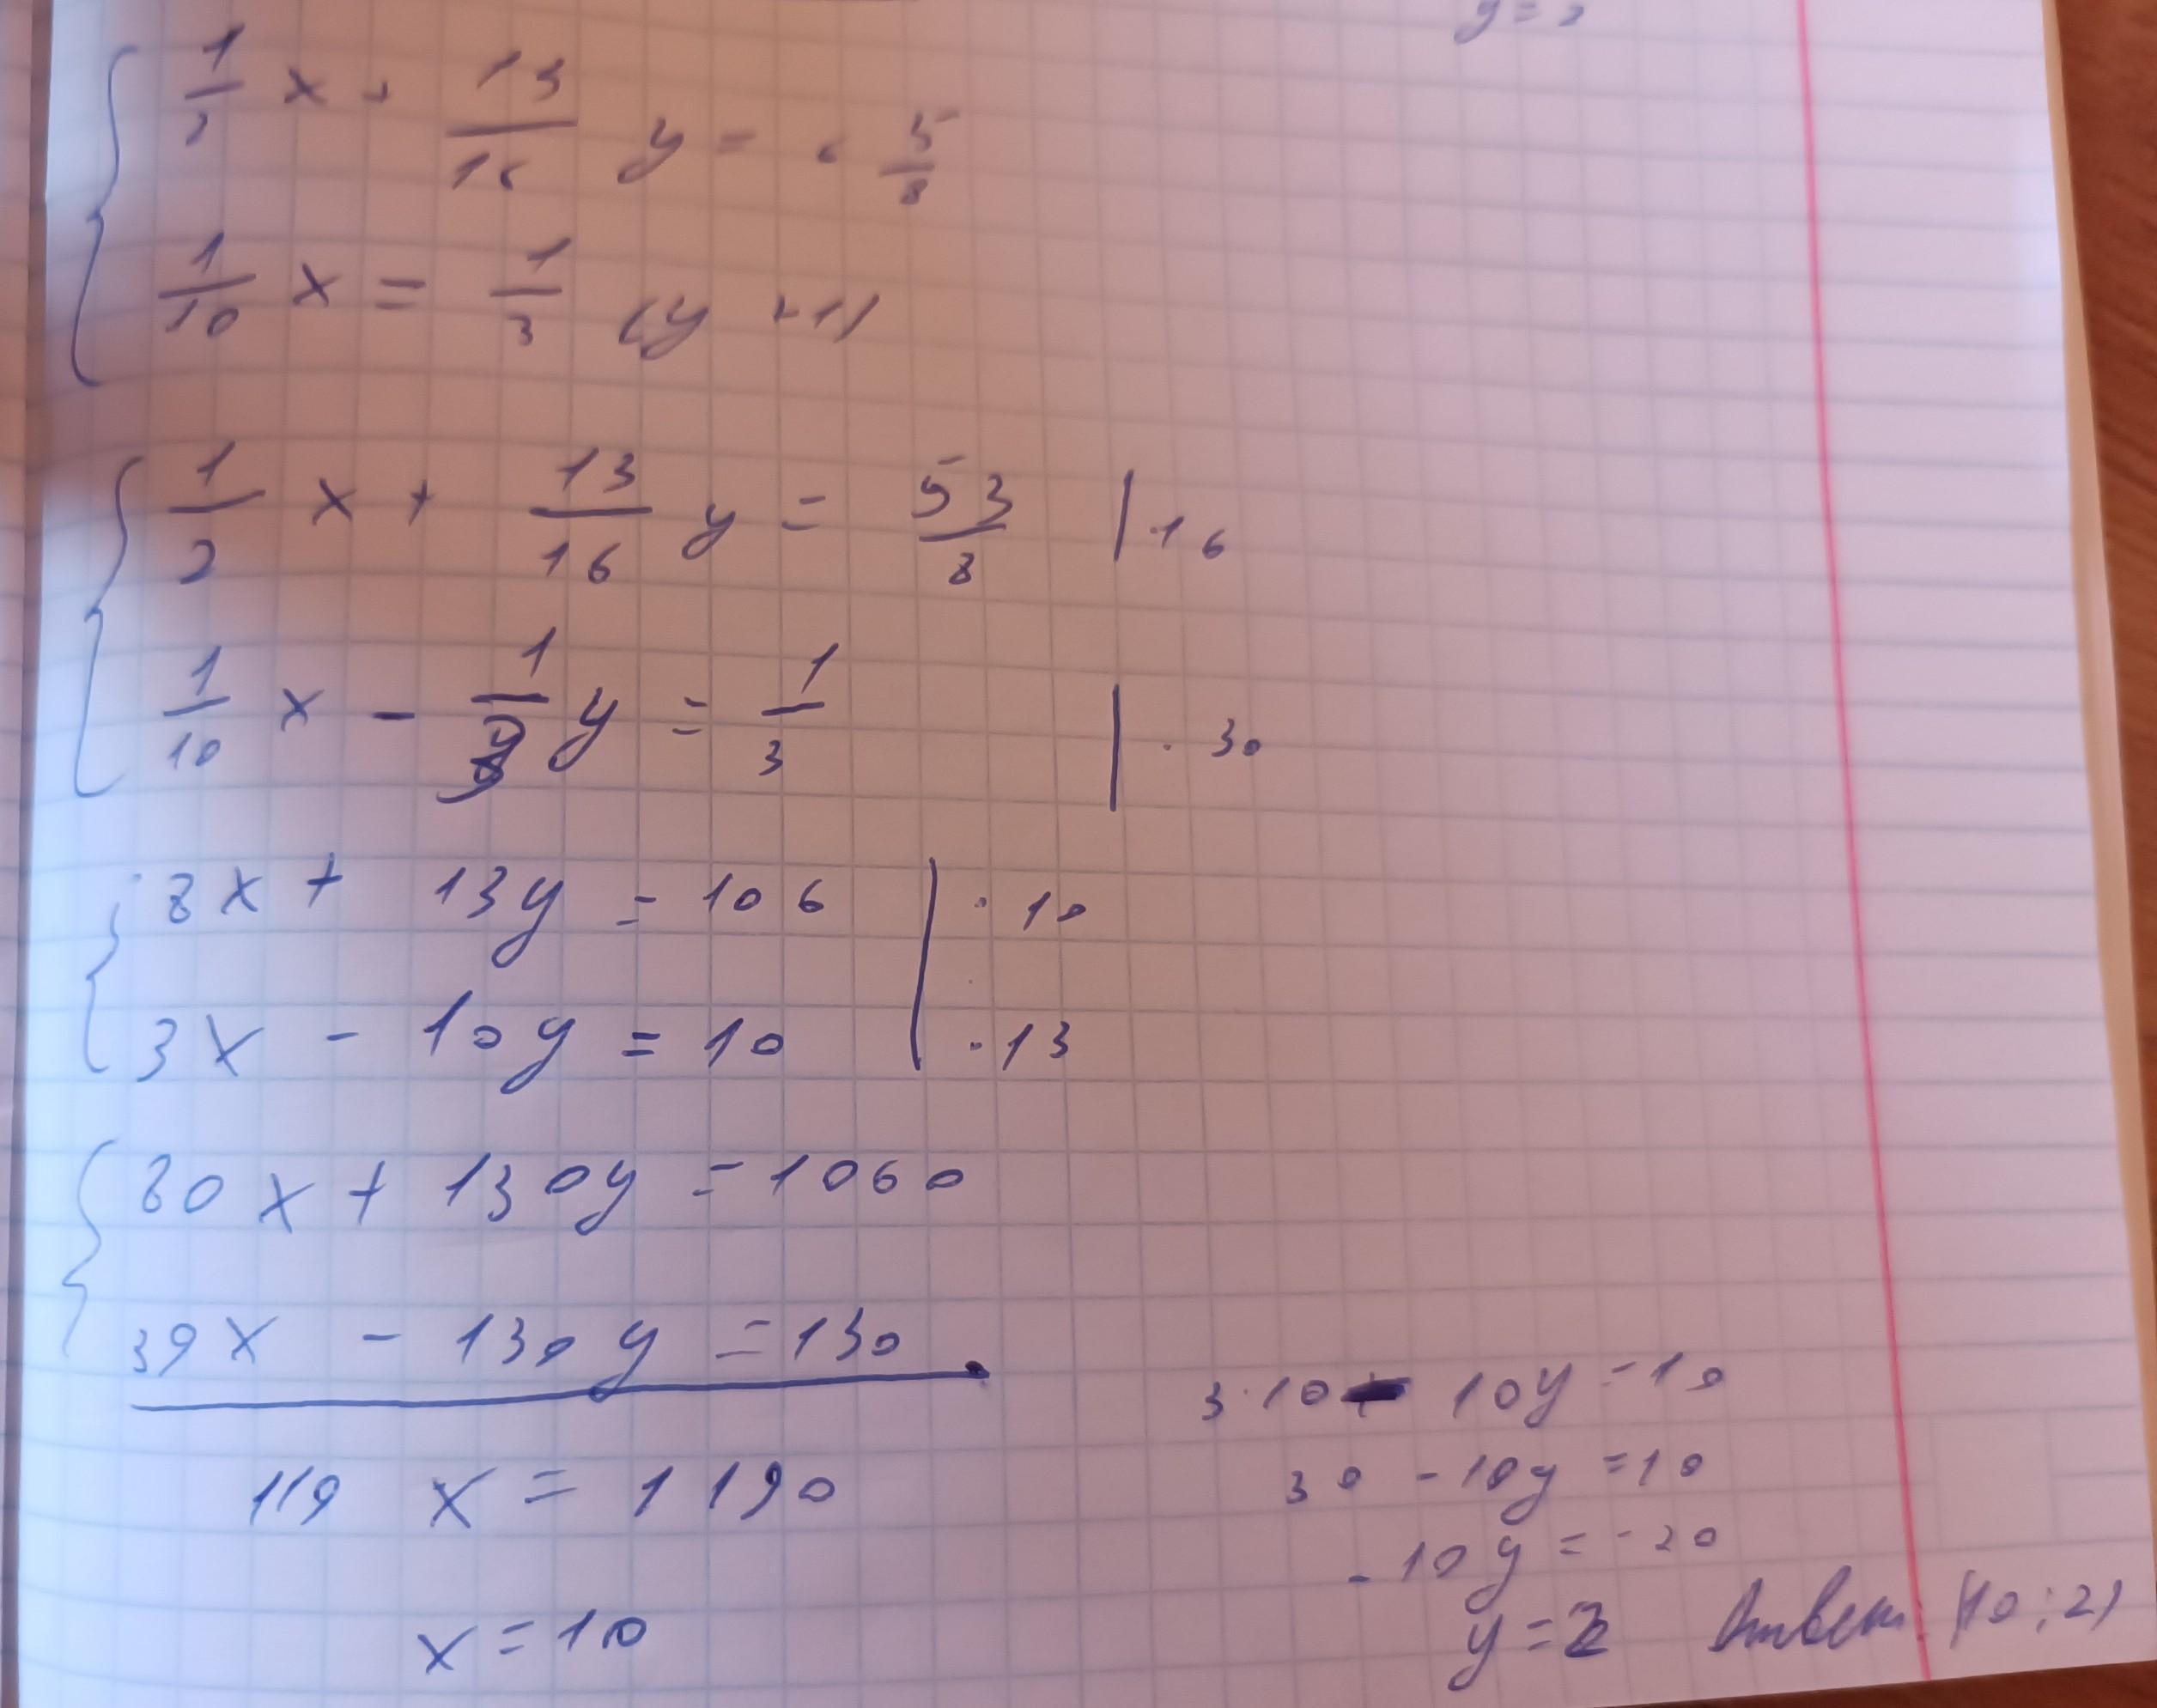 y = 2
1/2 x + 13/16 y = 6 5/8
1/10 x = 1/3 (y + 1)
1/2 x + 13/16 y = 53/8 | · 16
1/10 x - 1/3 y = 1/3 | · 30
8x + 13y = 106 | · 10
3x - 10y = 10 | · 13
80x + 130y = 1060
39x - 130y = 130
119 x = 1190
x = 10
3 · 10 - 10y = 10
30 - 10y = 10
- 10y = - 20
y = 2 Ответ: (10; 2)